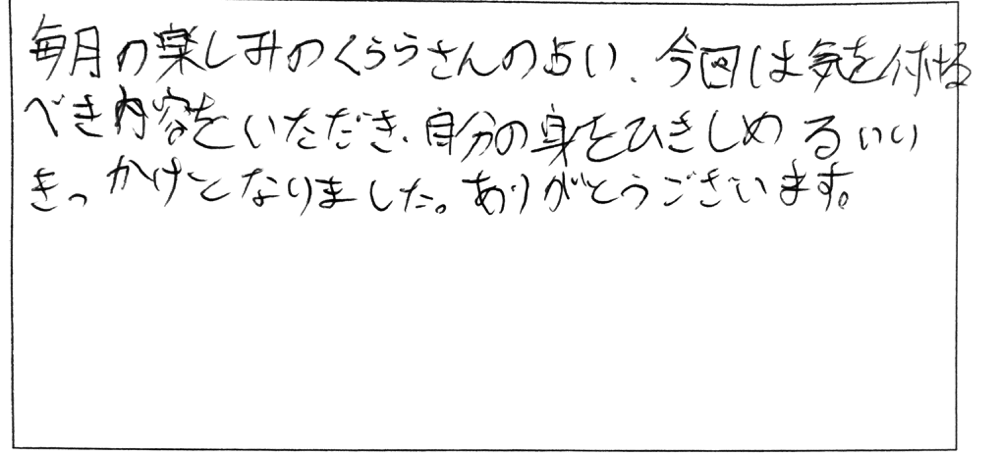 毎月の楽しみのくららさんの占い、今回は気を付ける
べき内容をいただき、自分の身をひきしめるいい
きっかけとなりました。ありがとうございます。